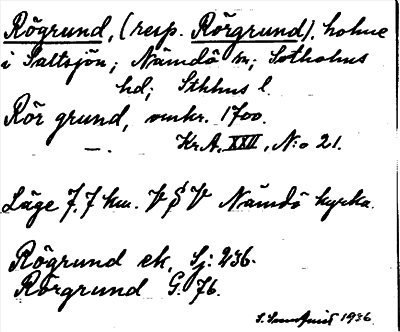 Rögrund, (resp. Rörgrund), holme
i Saltsjön; Nämdö sn; Sotholms
hd; Sthlms l.
Rör grund, omkr. 1700.
— . Kr. A. XXII, N:o 21.
Läge 7,7 km. V S V Nämdö kyrka.
Rögrund ek. Sj: 236.
Rörgrund G. 76.
1936